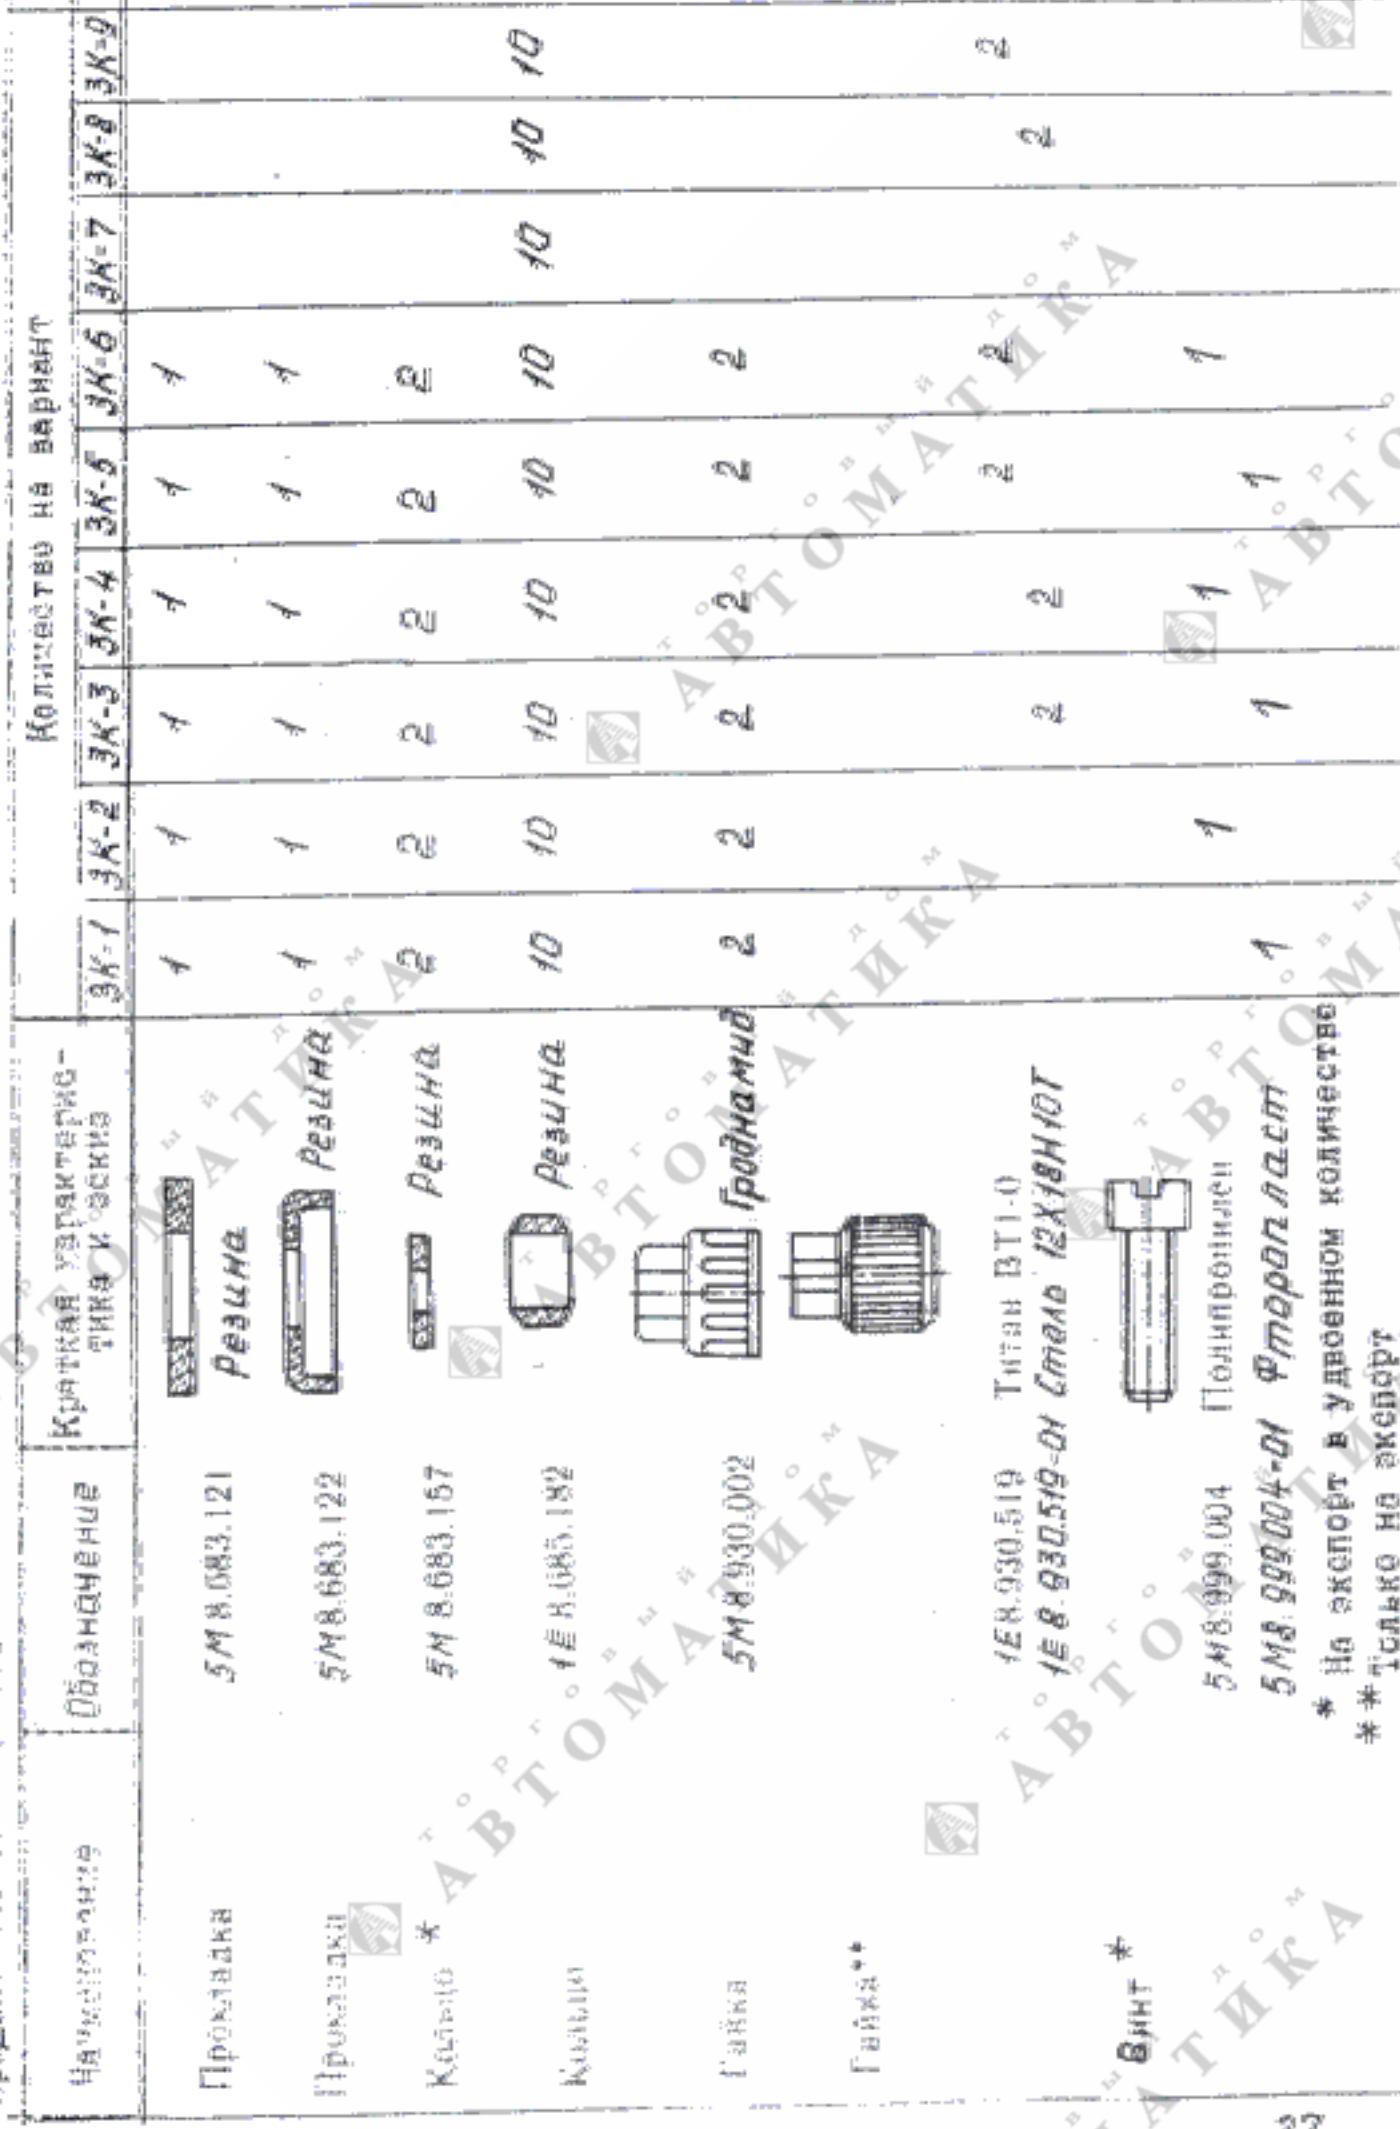 Количество на вариант
Наименование Обозначение Краткая характерис-
тика и эскиз ЗК-1 ЗК-2 ЗК-3 ЗК-4 ЗК-5 ЗК-6 ЗК-7 ЗК-8 ЗК-9
Прокладка 5М8.683.121 Резина 1 1 1 1 1 1
Прокладка 5М8.683.122 Резина 1 1 1 1 1 1
Кольцо * 5М8.683.167 Резина 2 2 2 2 2 2
Кольцо 1Е8.685.182 Резина 10 10 10 10 10 10 10 10 10
Гайка 5М8.930.002 Гроднамид 2 2 2 2 2 2
Гайка**
1Е8.930.519 Титан ВТ1-0 2 2 2
1Е8.930.519-01 Сталь 12Х18Н10Т 2 2 2
Винт *
5М8.999.004 Полипропилен 1 1 1
5М8.999.004-01 Фторопласт 1 1 1
* На экспорт в удвоенном количестве
** Только на экспорт
ТОРГОВЫЙ ДОМ
АВТОМАТИКА